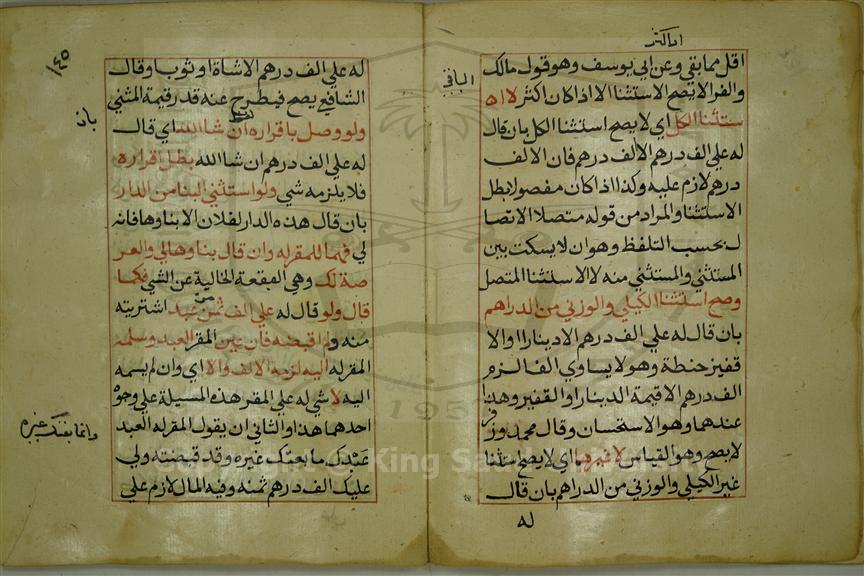 او اكثر
اقل مما بقي وعن ابي يوسف وهو قول مالك
الباقي
والفرا لا يصح الاستثنا الا اذا كان اكثر لا ا
ستثنا الكل اي لا يصح استثنا الكل بان قال
له علي الف درهم الا الف درهم فان الالف
درهم لازم عليه وكذا اذا كان مفصولا بطل
الاستثنا والمراد من قوله متصلا الاتصا
ل بحسب التلفظ وهو ان لا يسكت بين
المستثني والمستثني منه لا الاستثنا المتصل
وصح استثنا الكيلي والوزني من الدراهم
بان قال له علي الف درهم الا دينارا او الا
قفيز حنطة وهو لا يساوي الفا لزم
الف درهم الا قيمة الدينار او القفيز وهذا
عندهما وهو الاستحسان وقال محمد وزفر
لا يصح وهو القياس لا غيرهما اي لا يصح استثنا
غير الكيلي والوزني من الدراهم بان قال
له
١٤٥
له علي الف درهم الا شاة او ثوبا وقال
الشافعي يصح فيطرح عنه قدر قيمة المثني
ولو وصل باقراره ان شا الله اي قال
بان
له علي الف درهم ان شا الله بطل اقراره
فلا يلزمه شي ولو استثني البنا من الدار
بان قال هذه الدار لفلان الا بناوها فانه
لي فهما للمقر له وان قال بناوها لي والعر
صة لك وهي البقعة الخالية عن الشي فكما
قال ولو قال له علي الف من ثمن عبد اشتريته
منه ولم اقبضه فان عين المقر العبد وسلمه
المقر له اليه لزمه الالف والا اي وان لم يسمه
اليه لا شي له علي المقر هذه المسيلة علي وجوه
احدهما هذا والثاني ان يقول المقر له العبد
وانما بعتك غيره
عبدك ما بعتك غيره وقد قبضته ولي
عليك الف درهم ثمنه وفيه المال لازم علي